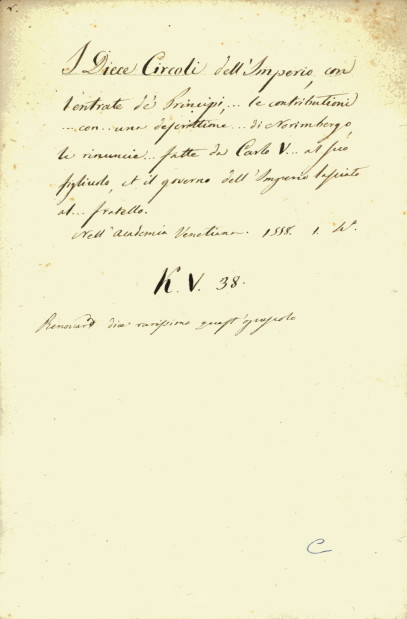 I Diece Circoli dell'Imperio, con
l'entrate de' Principi, ... le contributioni
... con ... una descrittione ... di Norimbergo
le rinuncie ... fatte da Carlo V ... al suo
figliuolo, et il governo dell'Imperio lasciato
al ... fratello.
Nell'Academia Venetiana. 1558. 1. 4°.
K. V. 38.
Renouard dice rarissimo quest'opuscolo
C